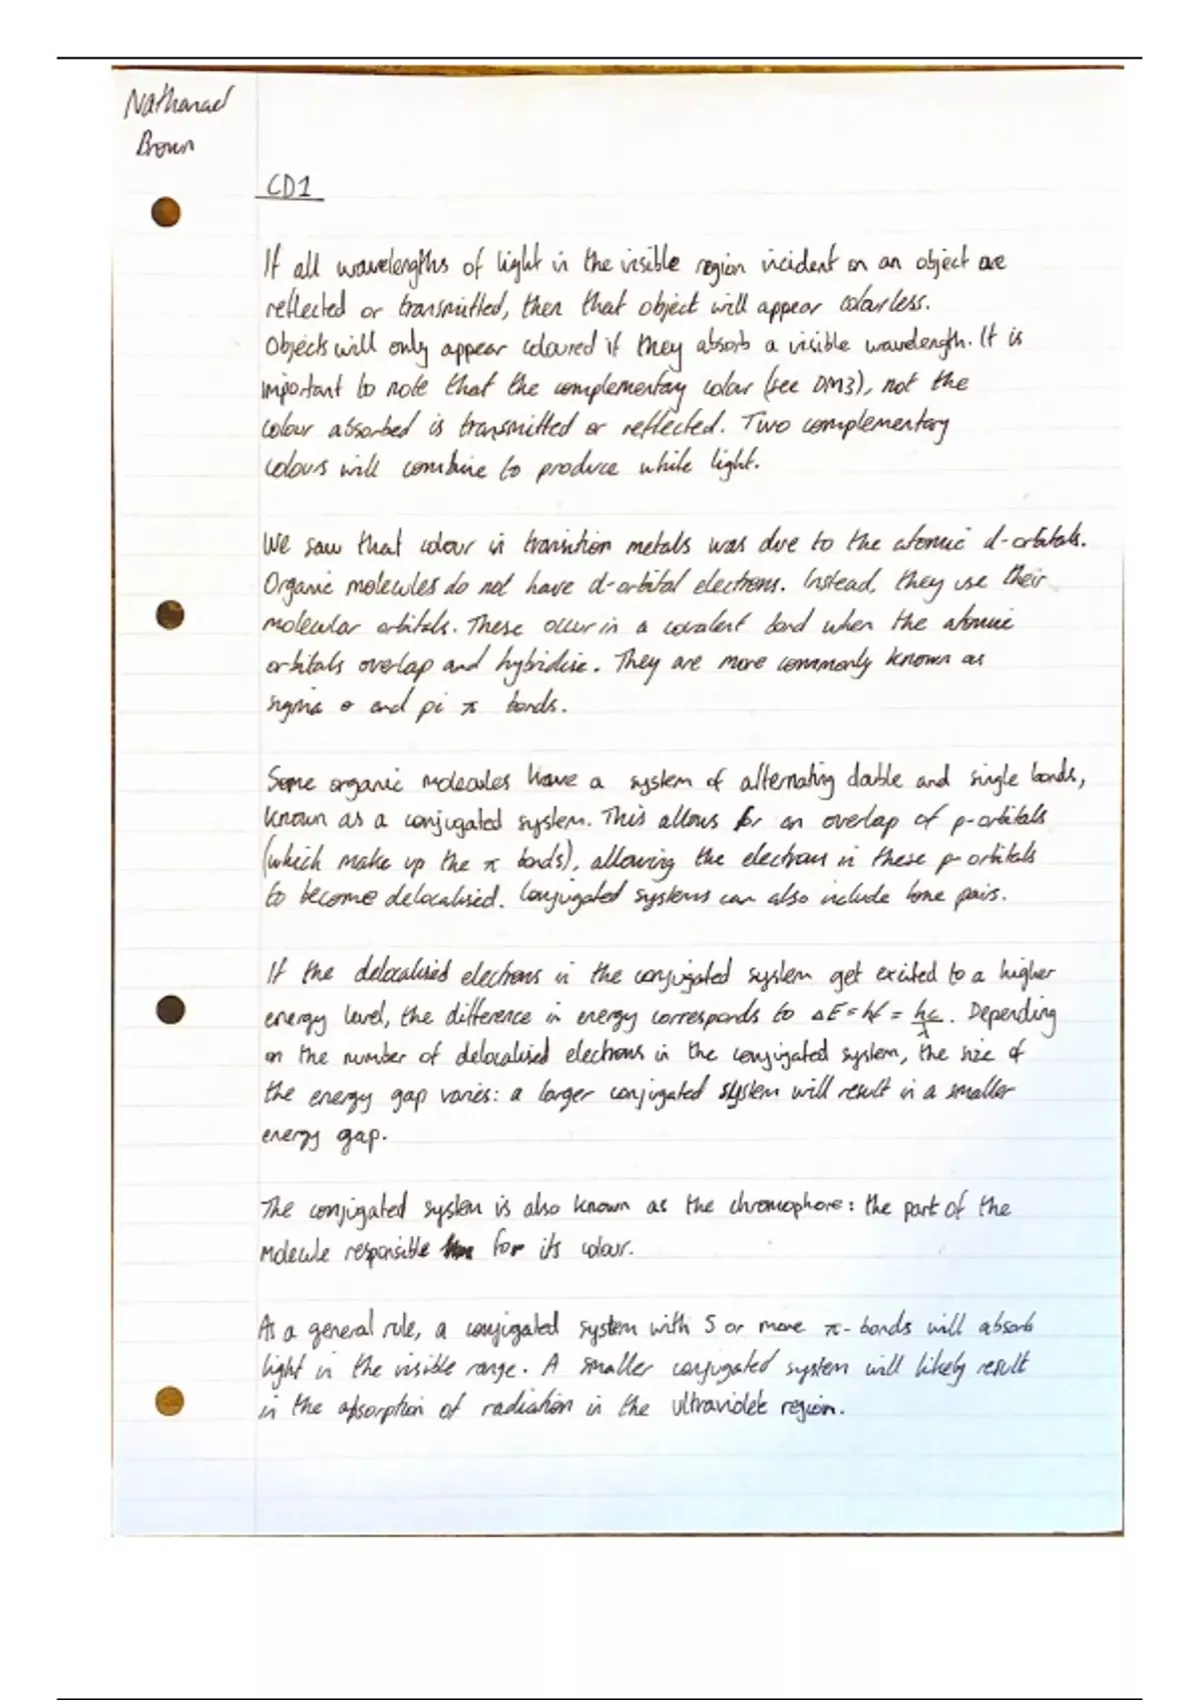 Nathanael
Brown
CD1
If all wavelengths of light in the visible region incident on an object are
reflected or transmitted, then that object will appear colourless.
Objects will only appear coloured if they absorb a visible wavelength. It is
important to note that the complementary colour (see DM3), not the
colour absorbed is transmitted or reflected. Two complementary
colours will combine to produce white light.
We saw that colour in transition metals was due to the atomic d-orbitals.
Organic molecules do not have d-orbital electrons. Instead, they use their
molecular orbitals. These occur in a covalent bond when the atomic
orbitals overlap and hybridise. They are more commonly known as
sigma σ and pi π bonds.
Some organic molecules have a system of alternating double and single bonds,
known as a conjugated system. This allows for an overlap of p-orbitals
(which make up the π bonds), allowing the electrons in these p-orbitals
to become delocalised. Conjugated systems can also include lone pairs.
If the delocalised electrons in the conjugated system get excited to a higher
energy level, the difference in energy corresponds to ΔE = hf = hc/λ. Depending
on the number of delocalised electrons in the conjugated system, the size of
the energy gap varies: a larger conjugated system will result in a smaller
energy gap.
The conjugated system is also known as the chromophore: the part of the
molecule responsible for its colour.
As a general rule, a conjugated system with 5 or more π-bonds will absorb
light in the visible range. A smaller conjugated system will likely result
in the absorption of radiation in the ultraviolet region.